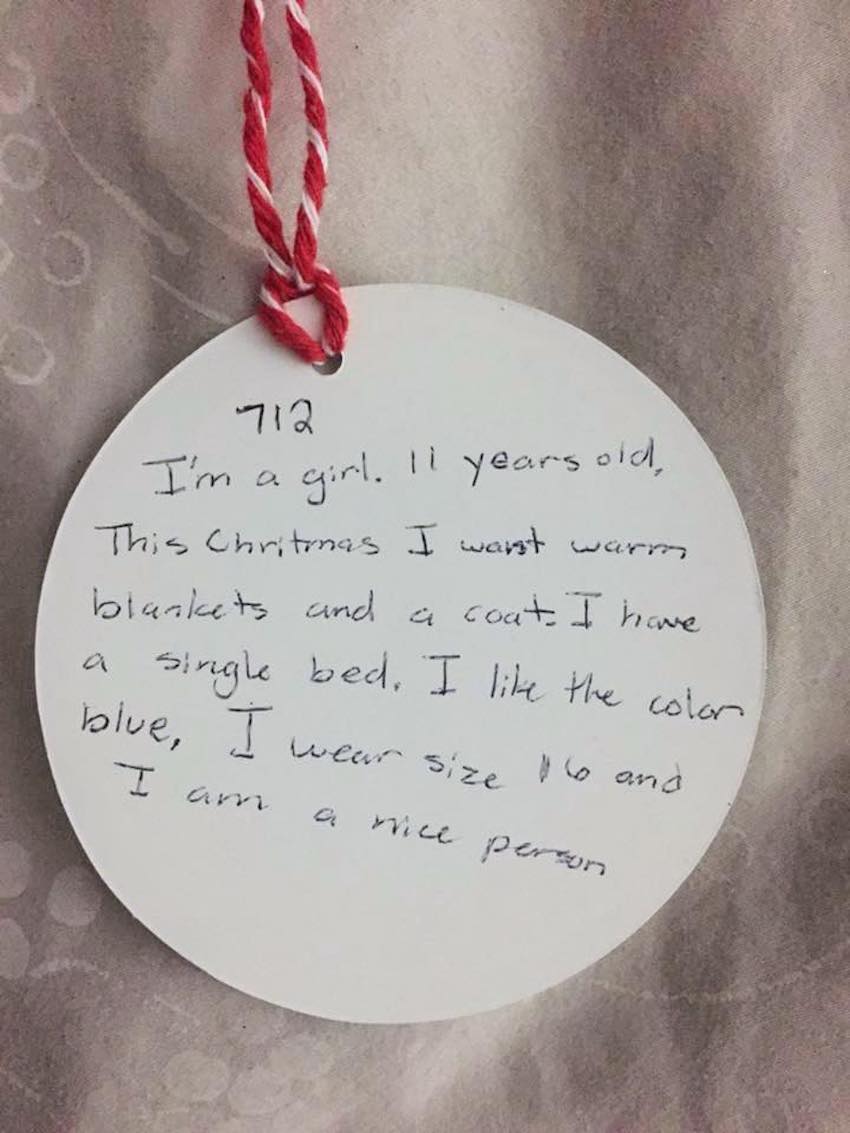 712
I'm a girl. 11 years old,
This Chritmas I want warm
blankets and a coat. I have
a single bed. I like the color
blue, I wear size 16 and
I am a nice person